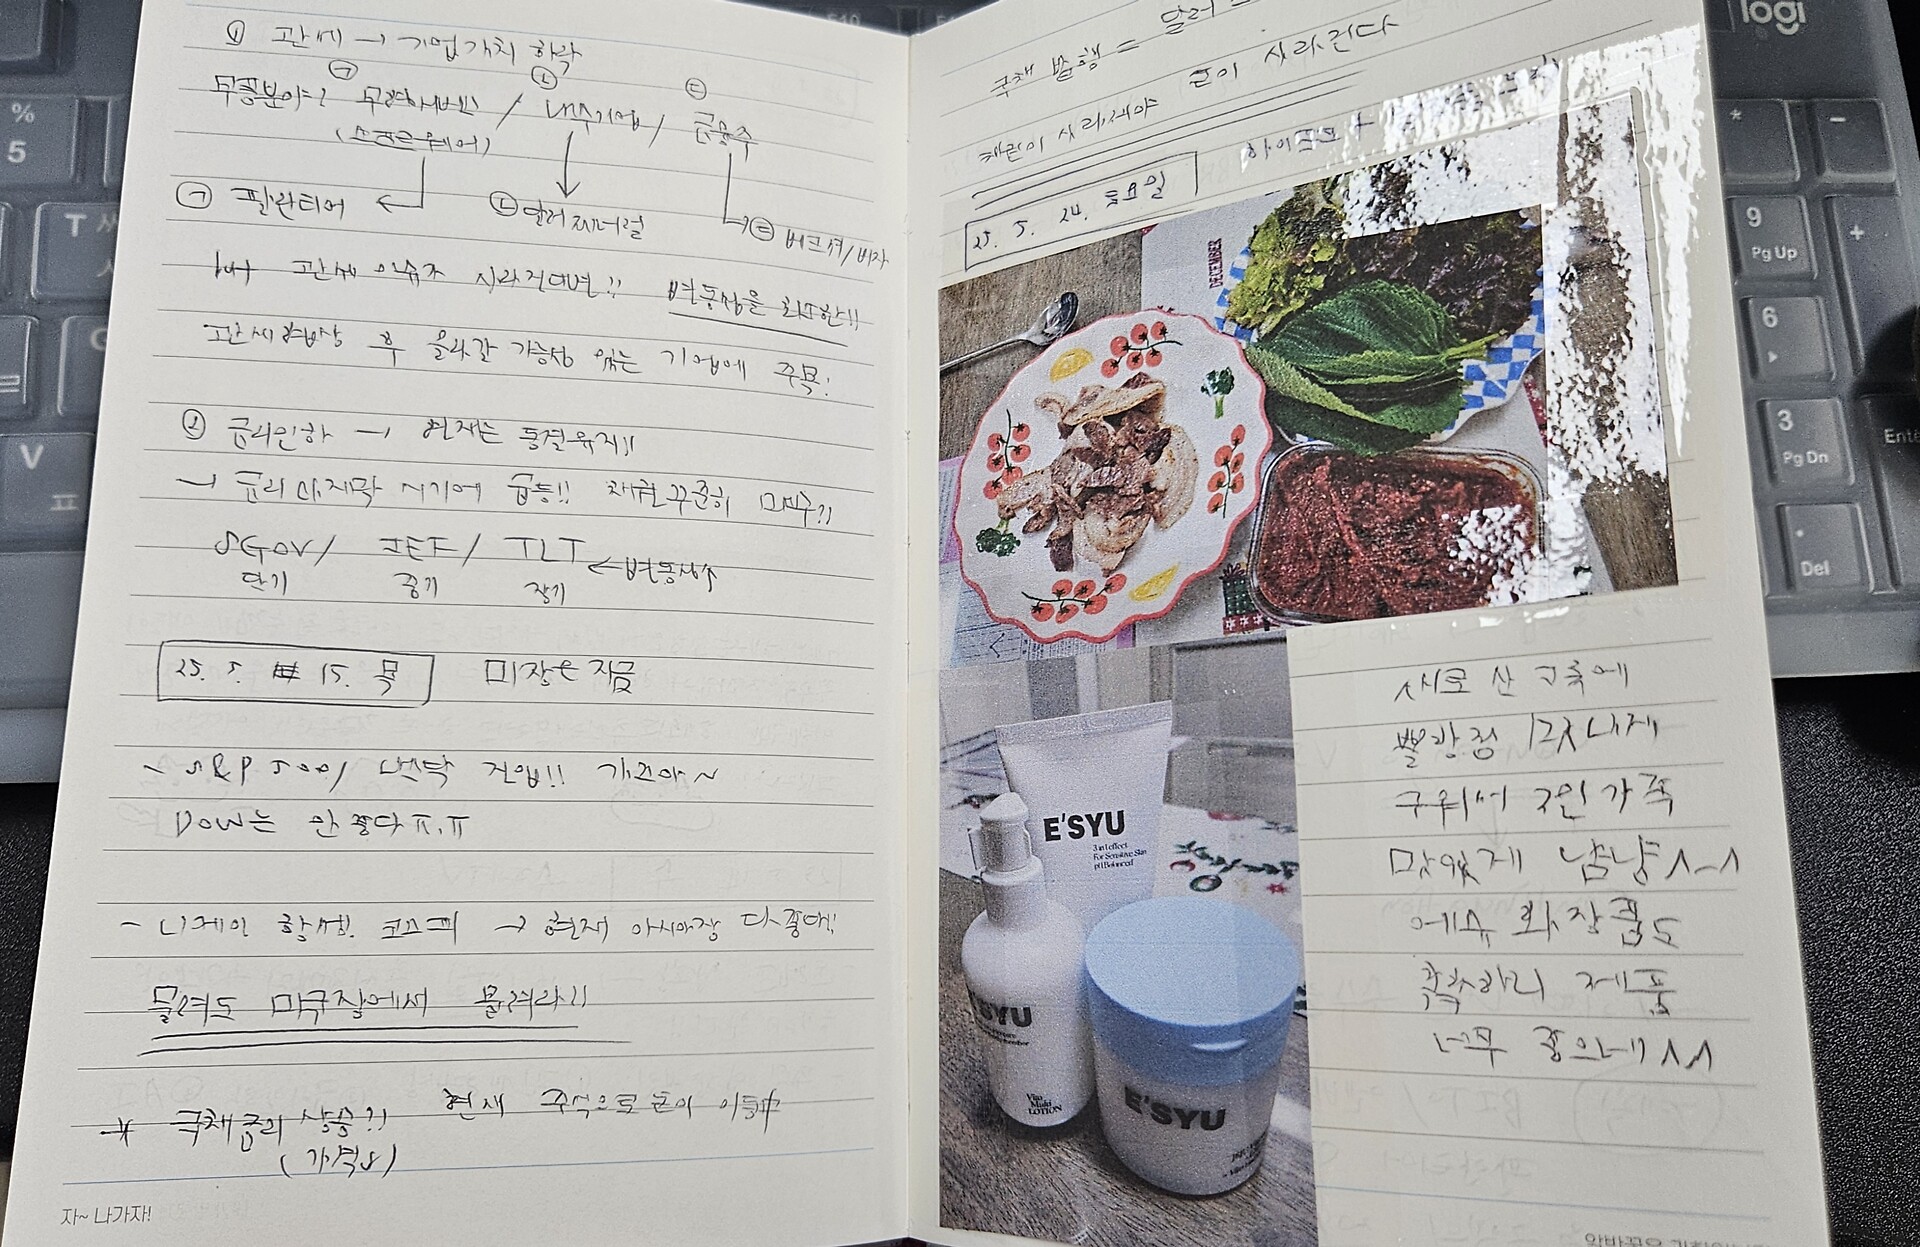 ① 관세 → 기업가치 하락
㉠ ㉡ ㉢
무풍분야? 무형서비스 / 내수기업 / 금융주
(소프트웨어)
㉠ 팔란티어 ㉡ 달러제너럴 ㉢ 버크셔/비자
But 관세 이슈가 사라진다면!! 변동성을 최소한!!
관세협상 후 올라갈 가능성 있는 기업에 주목!
② 금리인하 → 현재는 동결유지!!
→ 금리 마지막 시기에 급등!! 채권 꾸준히 매수?!
SGOV / IEF / TLT ← 변동성↑
단기 중기 장기
25. 5. 15. 목 미장은 지금
- S&P 500/ 나스닥 진입!! 가즈아~
DOW는 안 좋다 ㅠ.ㅠ
- 니케이 항셍! 코스피 → 현재 아시아장 다 좋대!!
물려도 미국장에서 물려라!!
* 국채금리 상승?! 현재 주식으로 돈이 이동中
(가격↓)
자~ 나가자!
국채 발행 = 달러
채권이 사라져야 돈이 사라진다
25. 5. 24. 토요일
DECEMBER
새로 산 그릇에
빨강점 이쁘게
구워서 3인 가족
맛있게 냠냠^-^
에슈 화장품도
착착하니 제품
너무 좋으네^^
E'SYU
3 in 1 effect
For Sensitive Skin
pH Balanced
E'SYU
LOTION
E'SYU
logi
%
5
T
V
ㅍ
*
-
9
Pg Up
+
6
3
Pg Dn
Ente
.
Del